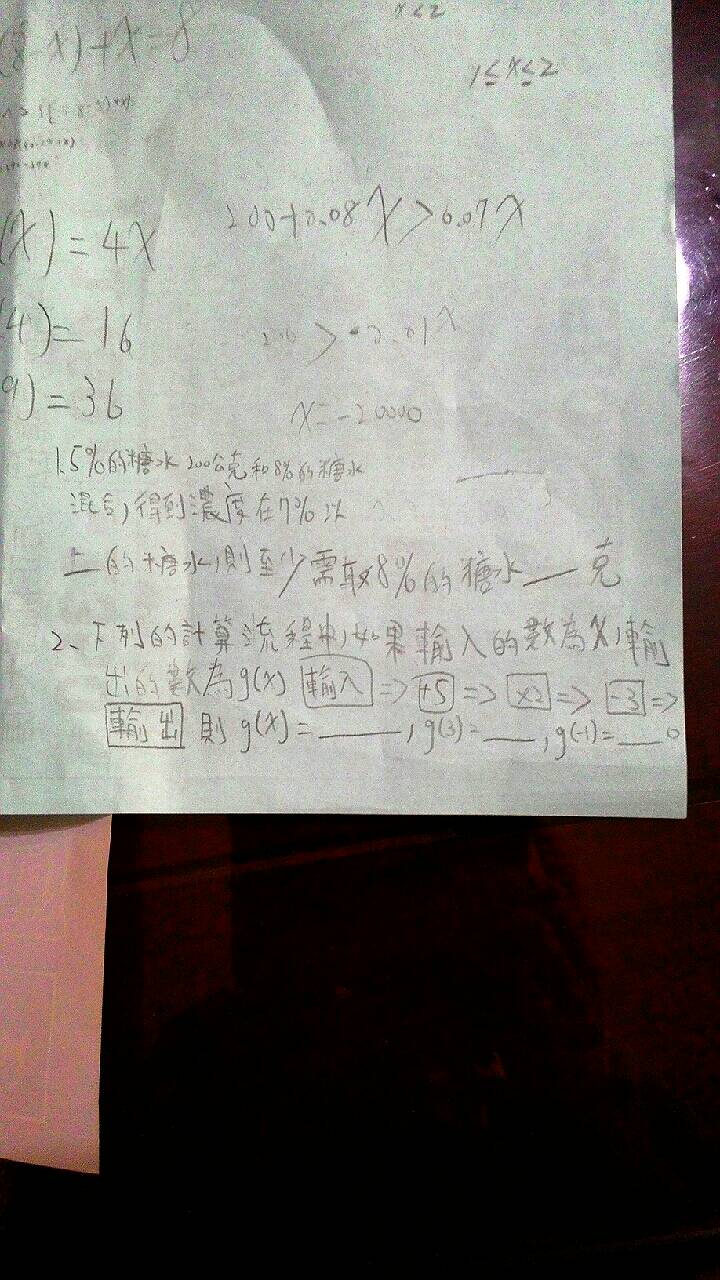 x<2
-x)+x=8
1≤x≤2
200+0.08x>0.07x
(x)=4x
200>-0.01x
4)=16
9)=36
x=-20000
1.5%的糖水200公克和8%的糖水
混合,得到濃度在7%以
上的糖水,則至少需取8%的糖水__克
2、下列的計算流程中,如果輸入的數為x,輸
出的數為g(x) 輸入=>+5=>x2=>-3=>
輸出 則g(x)=____,g(3)=__,g(-1)=__。